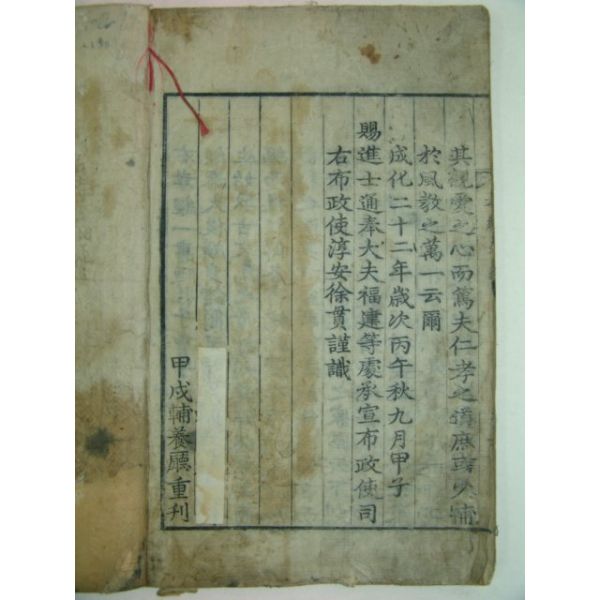 其親愛之心而篤夫仁孝之道庶或少補
於風敎之萬一云爾
成化二十二年歲次丙午秋九月甲子
賜進士通奉大夫福建等處承宣布政使司
右布政使淳安徐貫謹識
甲戌輔養廳重刊